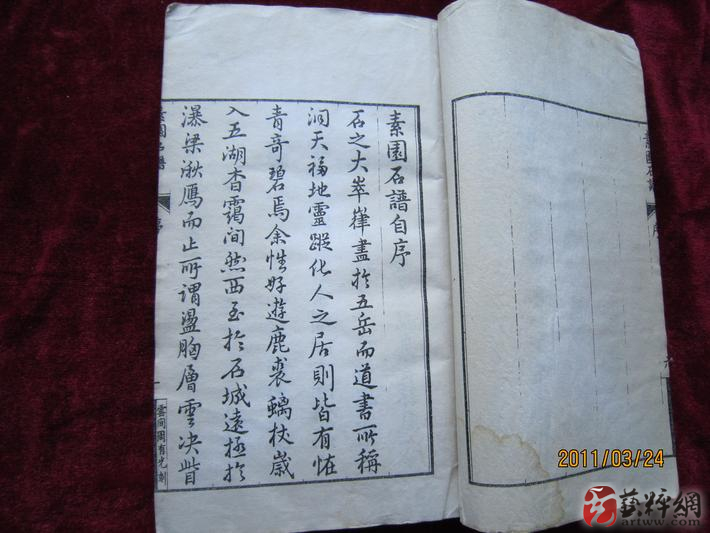 素園石譜自序
石之大崒嵂盡於五岳而道書所稱
洞天福地靈蹤化人之居則皆有恠
青奇碧焉余性好遊鹿裘螭杖歲
入五湖杳靄間然西至於石城遠極於
瀑梁湫鴈而止所謂盪胸層雲决眥
素園石譜
序
一
雲間周有光刻
素園石譜
序
六
2011/03/24
藝粹網
artww.com